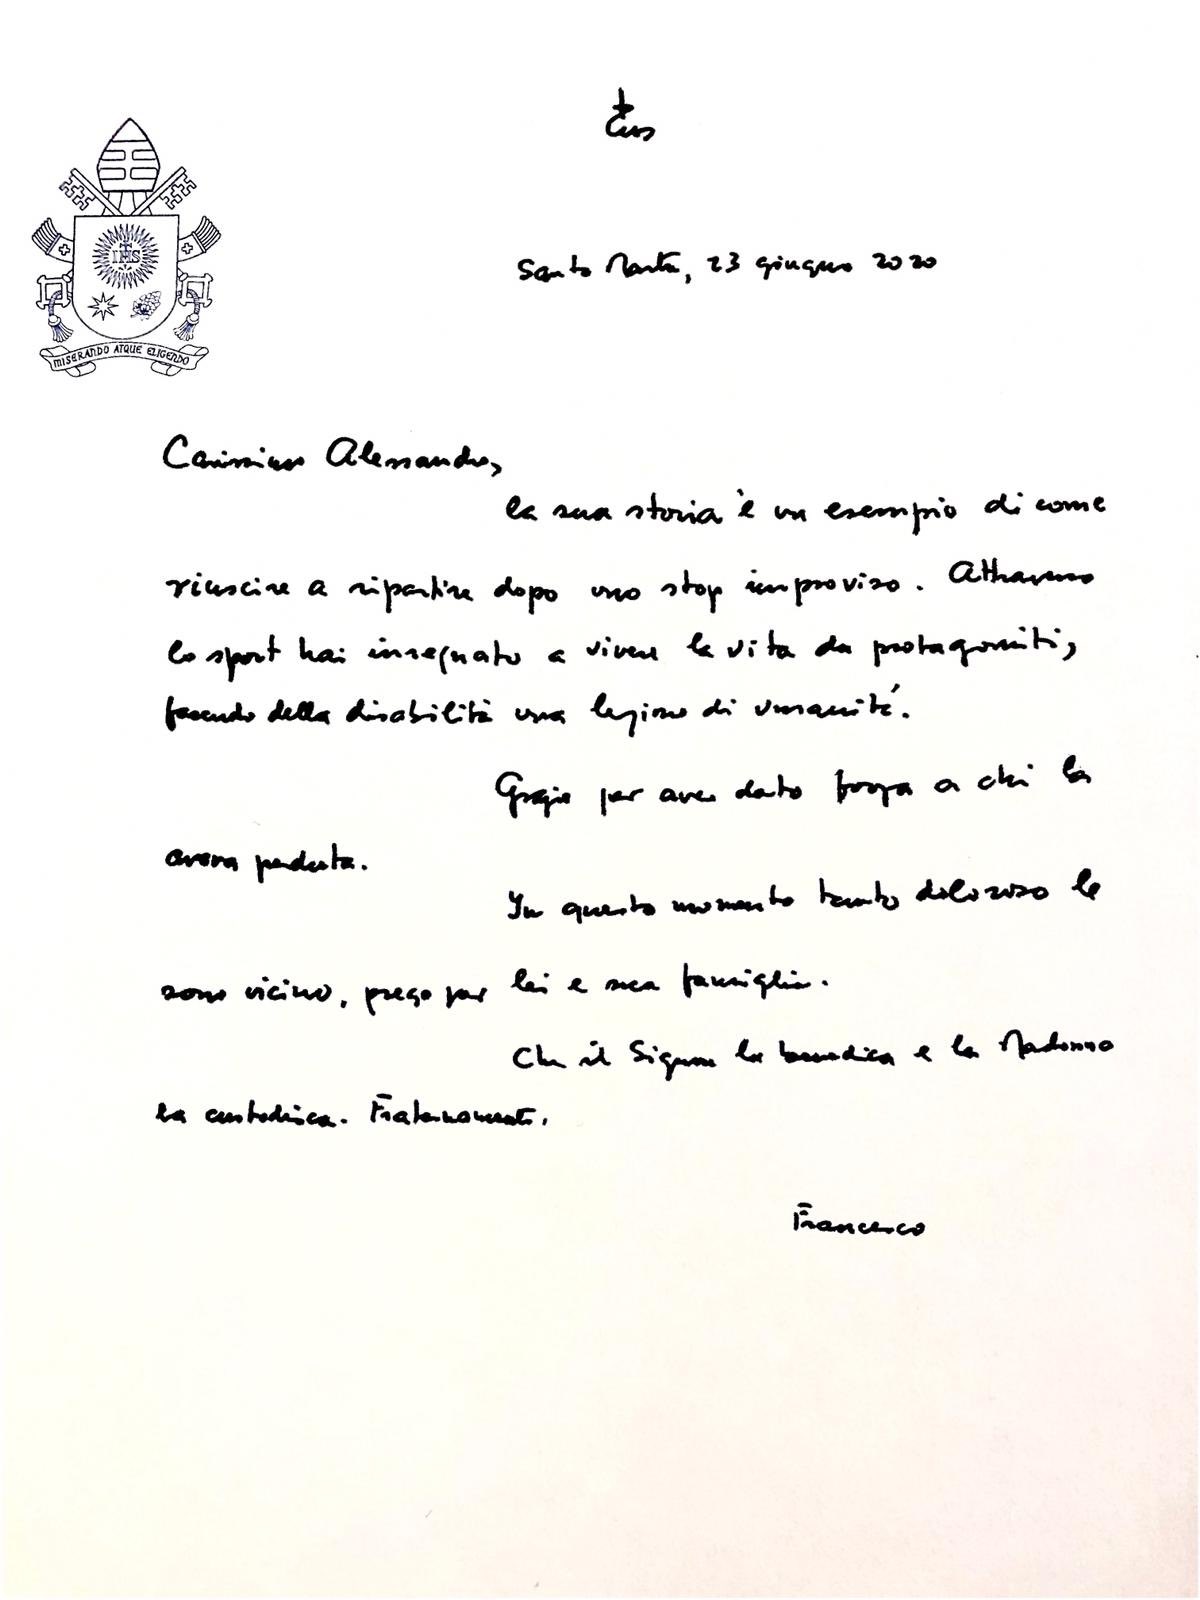 IHS
MISERANDO ATQUE ELIGENDO
Santa Marta, 23 giugno 2020
Carissimo Alessandro,
la sua storia è un esempio di come
riuscire a ripartire dopo uno stop improvviso. Attraverso
lo sport hai insegnato a vivere la vita da protagonisti,
facendo della disabilità una lezione di umanità.
Grazie per aver dato forza a chi la
aveva perduta.
In questo momento tanto doloroso le
sono vicino, prego per lei e sua famiglia.
Che il Signore la benedica e la Madonna
la custodisca. Fraternamente,
Francesco